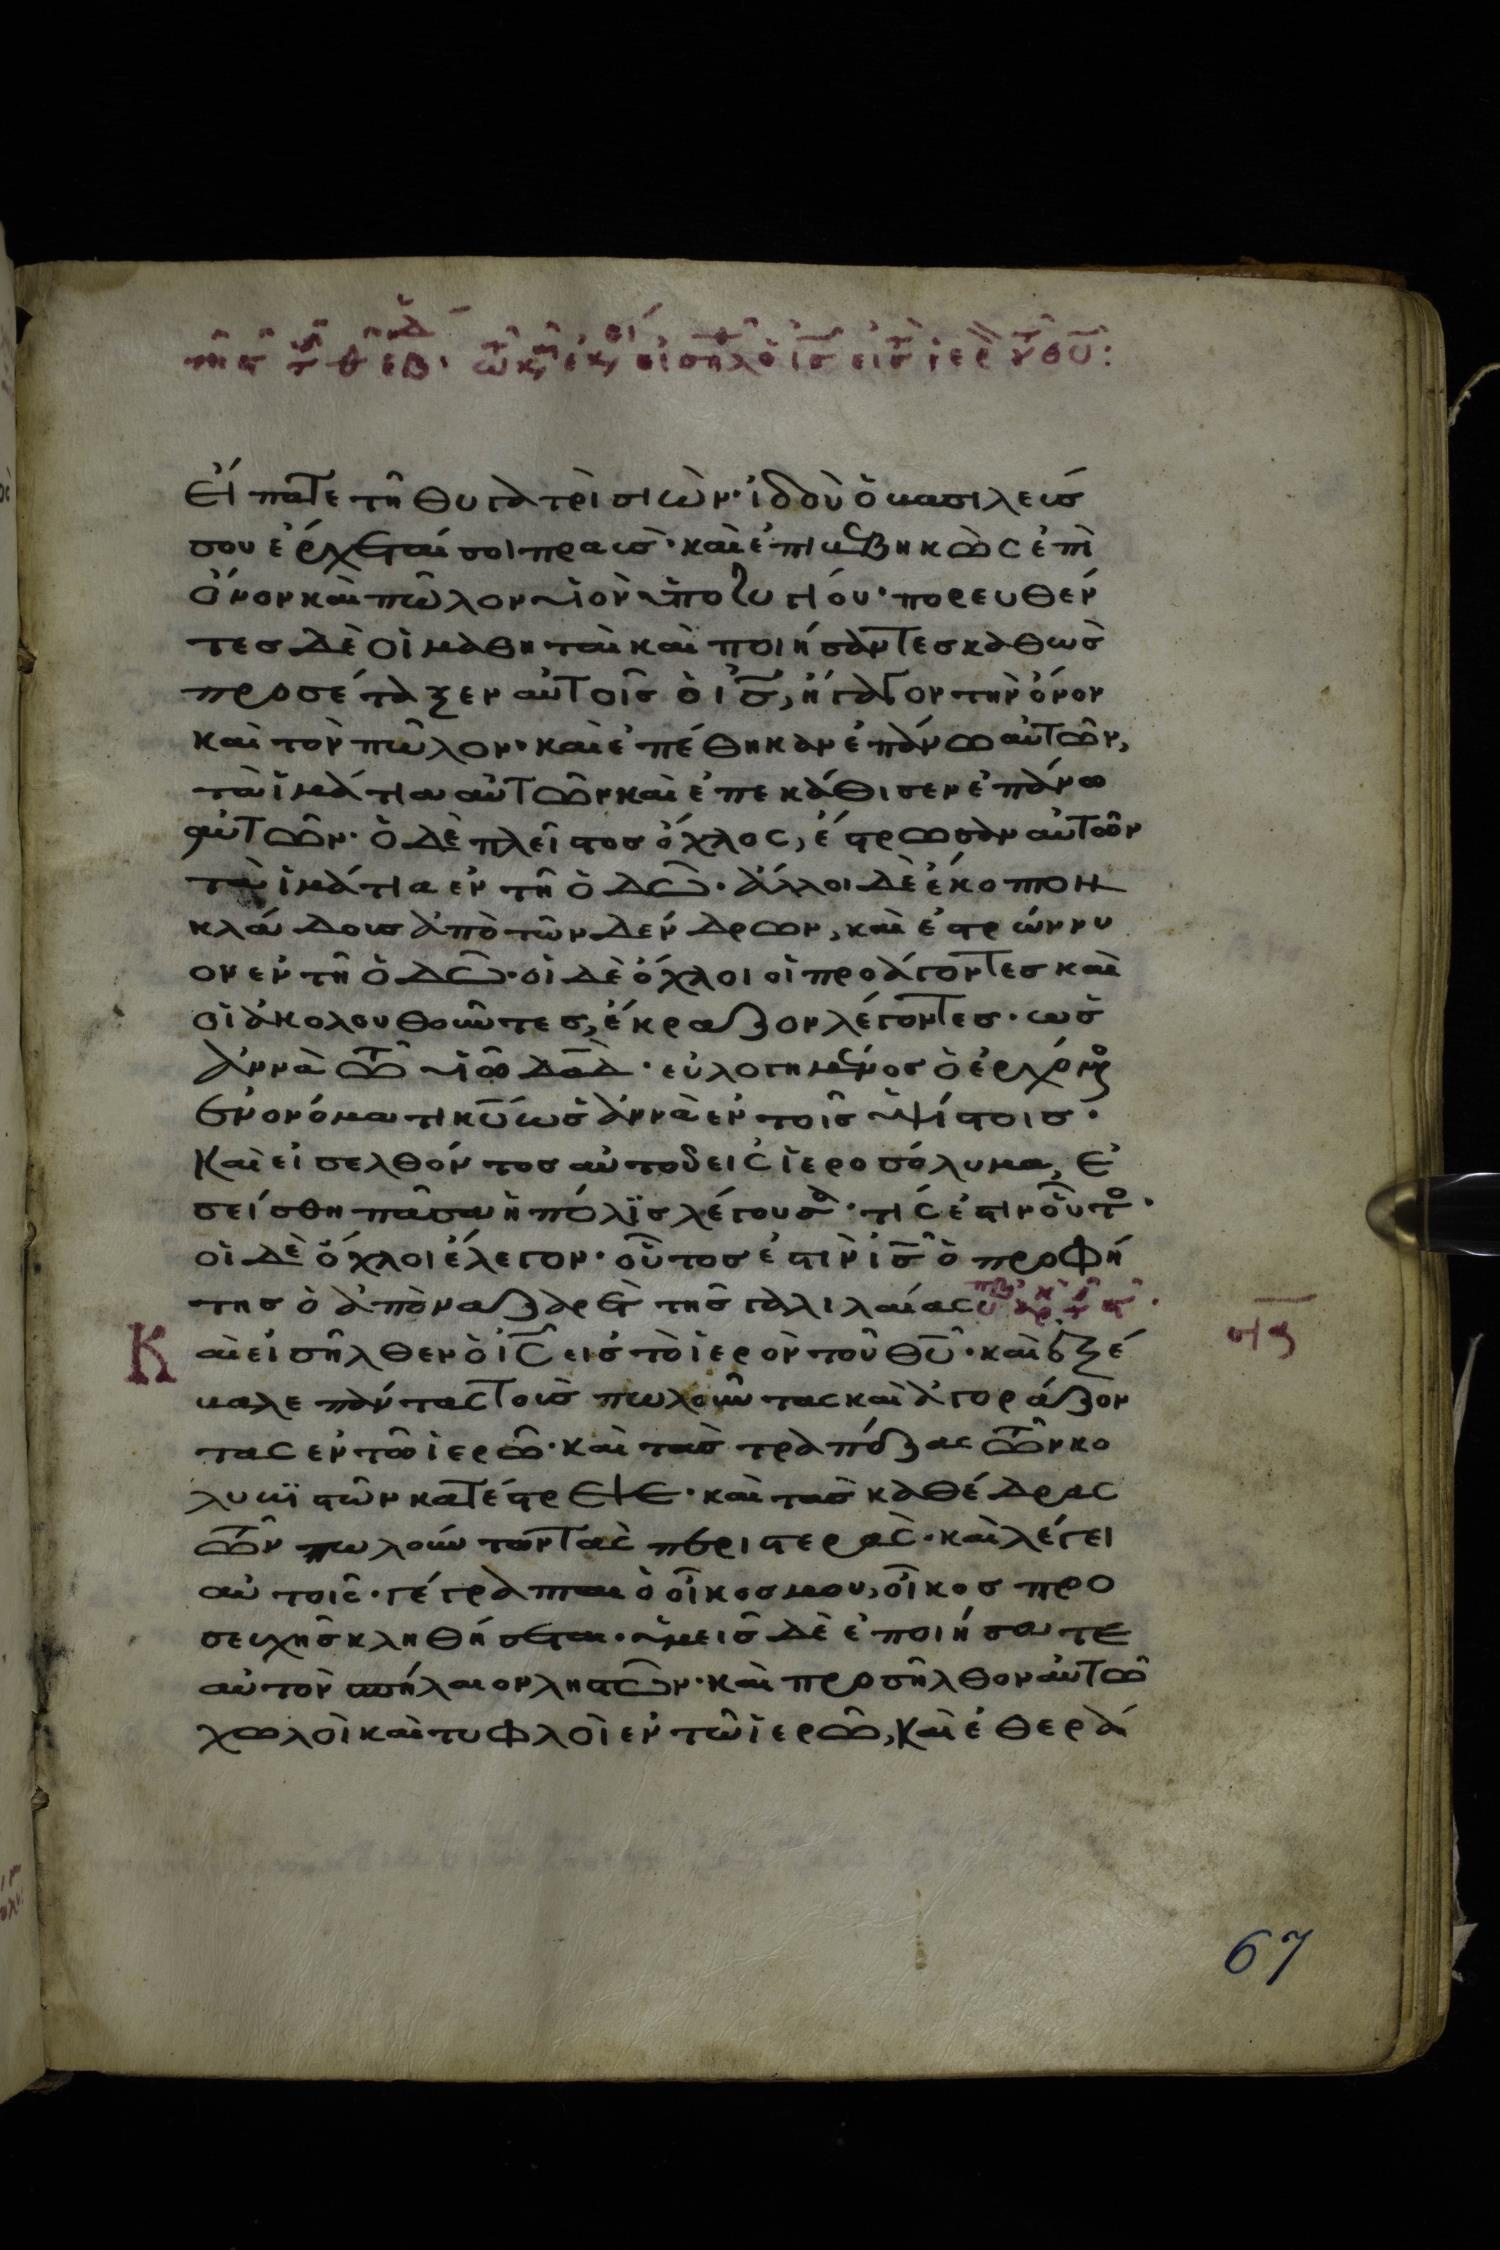 Εἴπατε τῆ θυγατρὶ σιὼν· ἰδοὺ ὁ βασιλεύς
σου ἔρχεταί σοι πραυς· καὶ ἐπιβεβηκὼς ἐπὶ
ὄνον καὶ πῶλον υἱὸν ὑποζυγίου· πορευθέν
τες δὲ οἱ μαθηταὶ καὶ ποιήσαντες καθὼς
προσέταξεν αὐτοῖς ὁ ις̅, ἤγαγον τὴν ὄνον
καὶ τὸν πῶλον· καὶ ἐπέθηκαν ἐπάνω αὐτῶν,
τὰ ἱμάτια αὐτῶν καὶ ἐπεκάθισεν ἐπάνω
αὐτῶν· ὁ δὲ πλεῖστος ὄχλος, ἔστρωσαν αὐτῶν
τὰ ἱμάτια ἐν τῆ ὁδῶ· ἄλλοι δὲ ἔκοπτον
κλάδους ἀπὸ τῶν δένδρων, καὶ ἐστρώννυ
ον ἐν τῆ ὁδῶ· οἱ δὲ ὄχλοι οἱ προάγοντες καὶ
οἱ ἀκολουθοῦντες, ἔκραζον λέγοντες· ὡσ
ἀννὰ τῶ υἱῶ δαδ̅· εὐλογημένος ὁ ἐρχόμε
ἐν ὀνόματι κυ̅ ὡσἀννὰ ἐν τοῖς ὑψίστοις·
Καὶ εἰσελθόντος αὐτοῦ εἰς ἱεροσόλυμα, ἐ
σείσθη πᾶσα ἡ πόλϊς λέγουσα· τίς ἐστιν οὗτο·
οἱ δὲ ὄχλοι ἔλεγον· οὗτος ἐστὶν ις̅ ὁ προφή
της ὁ ἀπὸ ναζαρὲτ τῆς γαλιλαίας
Καὶ εἰσῆλθεν ὁ ις̅ εἰς τὸ ἱερὸν τοῦ θυ̅· καὶ ἐξέ
βαλε πάντας τοὺς πωλοῦντας καὶ ἀγοράζον
τας ἐν τῶ ἱερῶ· καὶ τὰς τραπέζας τῶν κο
λυβϊστῶν κατέστρεψε· καὶ τὰς καθέδρας
τῶν πωλούντων τὰς περιστεράς· καὶ λέγει
αὐτοῖς· γέγραπται ὁ οἶκος μου, οἶκος προ
σευχῆς κληθήσεται· ὑμεῖς δὲ ἐποιήσατε
αὐτὸν σπήλαιον ληστῶν· καὶ προσῆλθον αὐτῶ
χωλοὶ καὶ τυφλοὶ ἐν τῶ ἱερῶ, Καὶ ἐθερά
67